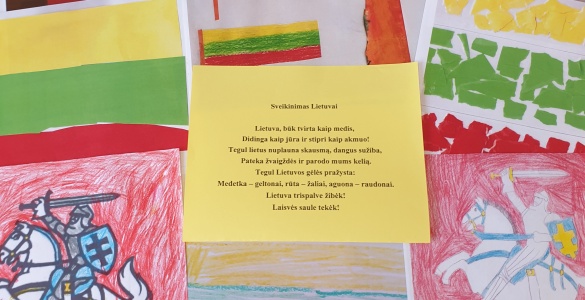 Sveikinimas Lietuvai
Lietuva, būk tvirta kaip medis,
Didinga kaip jūra ir stipri kaip akmuo!
Tegul lietus nuplauna skausmą, dangus sužiba,
Pateka žvaigždės ir parodo mums kelią.
Tegul Lietuvos gėlės pražysta:
Medetka – geltonai, rūta – žaliai, aguona – raudonai.
Lietuva trispalve žibėk!
Laisvės saule tekėk!